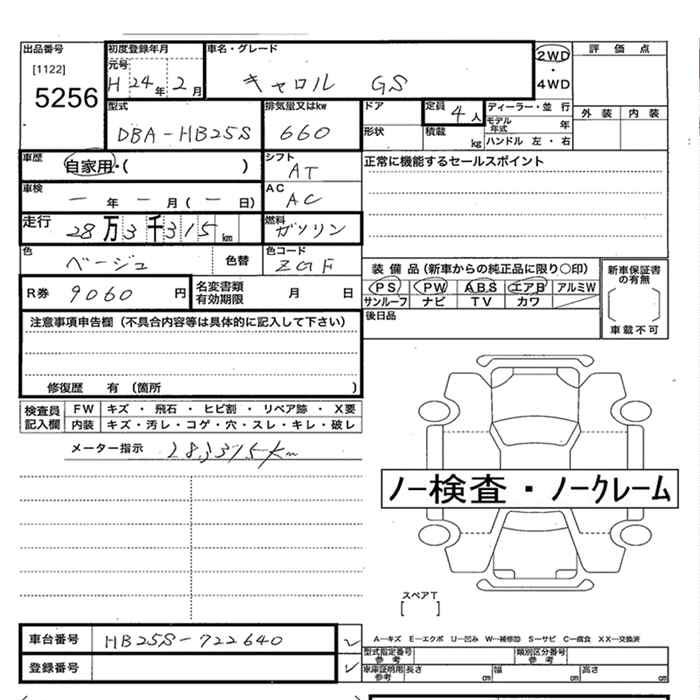 出品番号
[1122]
5256
初度登録年月
元号
H 24年 2月
車名・グレード
キャロル GS
2WD
・
4WD
評価点
外装 内装
型式
DBA-HB25S
排気量又はkw
660
ドア
形状
定員 4人
積載 kg
ディーラー・並行
モデル年式 年
ハンドル 左・右
車歴
自家用・( )
シフト
AT
車検
ー 年 ー 月(ー 日)
AC
AC
走行
28万3千315km
燃料
ガソリン
色
ベージュ
色替
色コード
ZGF
R券 9060円
名変書類
有効期限 月 日
正常に機能するセールスポイント
装備品(新車からの純正品に限り○印)
PS PW ABS エアB アルミW
サンルーフ ナビ TV カワ
後日品
新車保証書
の有無
車載不可
注意事項申告欄(不具合内容等は具体的に記入して下さい)
修復歴 有(箇所 )
検査員
記入欄
FW キズ・飛石・ヒビ割・リペア跡・X要
内装 キズ・汚レ・コゲ・穴・スレ・キレ・破レ
メーター指示 283315km
ノー検査・ノークレーム
スペアT
[ ]
車台番号 HB25S-722640
登録番号
A…キズ E…エクボ U…凹み W…補修跡 S…サビ C…腐食 XX…交換済
型式指定番号
参考
類別区分番号
参考
車庫証明用
参考
長さ cm 幅 cm 高さ cm